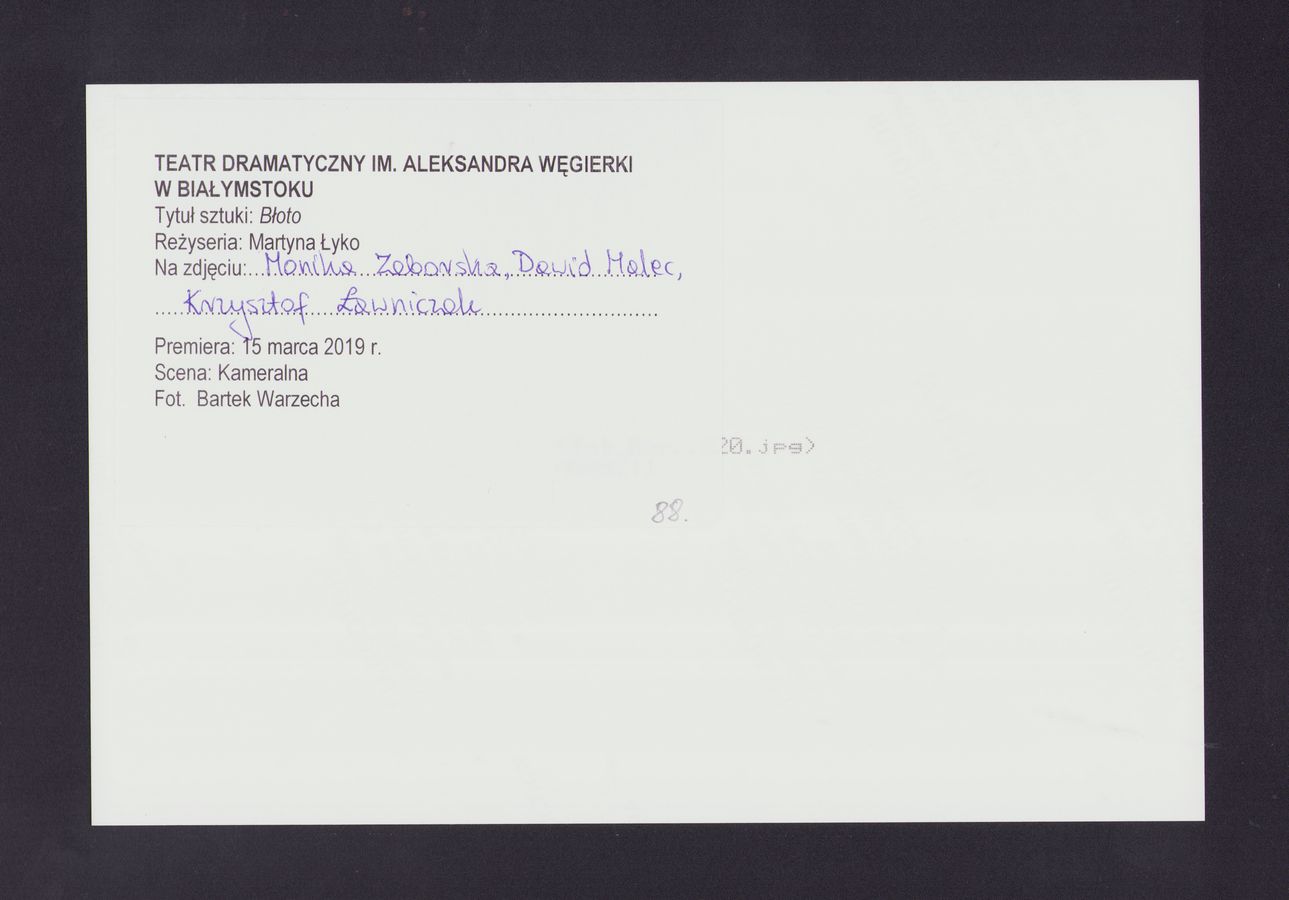 TEATR DRAMATYCZNY IM. ALEKSANDRA WĘGIERKI
W BIAŁYMSTOKU
Tytuł sztuki: Błoto
Reżyseria: Martyna Łyko
Na zdjęciu:...Monika Zaborska, Dawid Malec,
.....Krzysztof Ławniczak..............................
Premiera: 15 marca 2019 r.
Scena: Kameralna
Fot. Bartek Warzecha
20.jpg)
88.